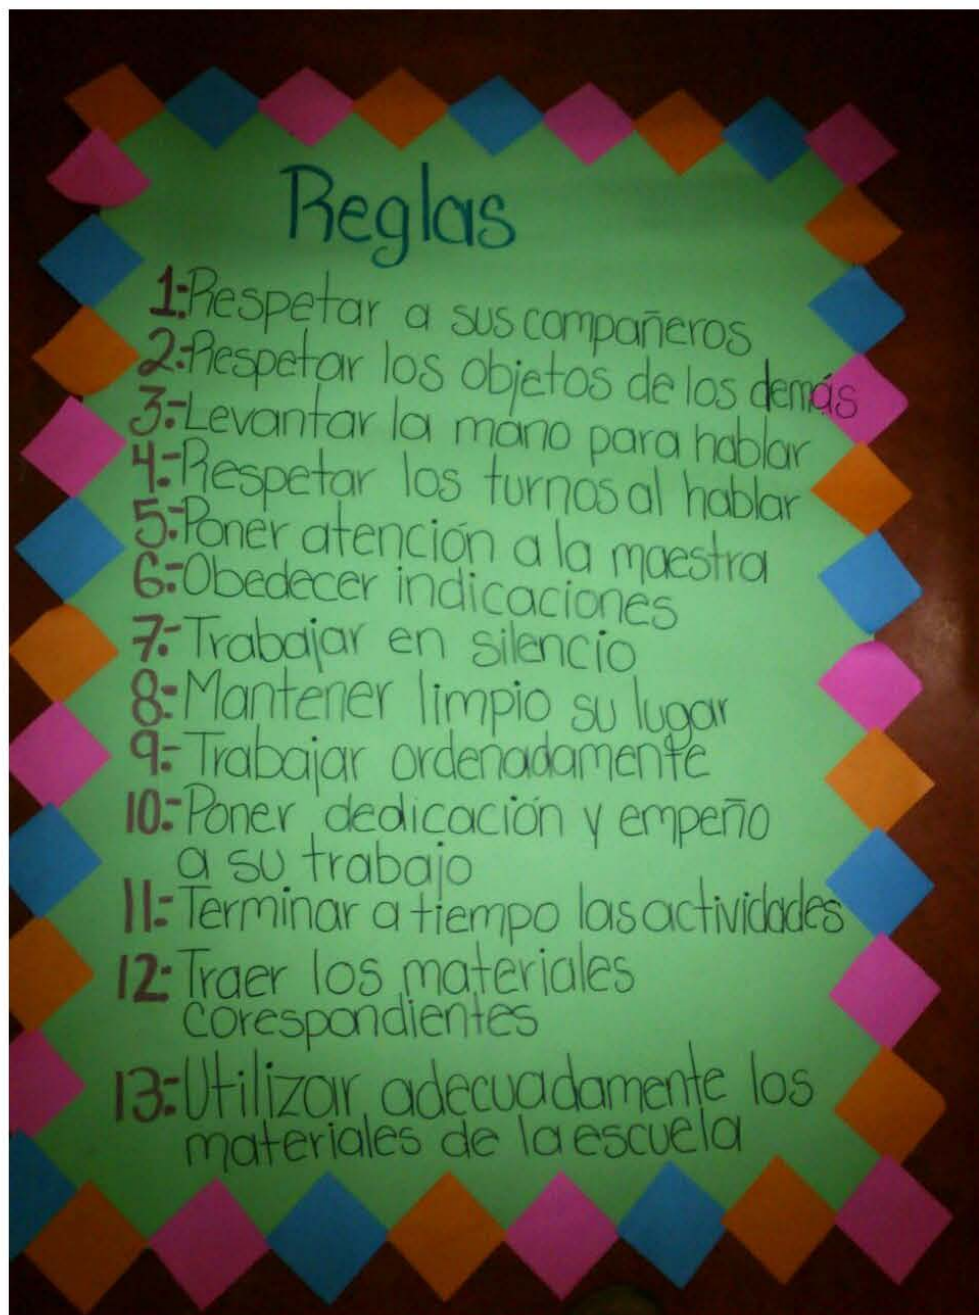 Reglas
1.-Respetar a sus compañeros
2.-Respetar los objetos de los demás
3.-Levantar la mano para hablar
4.-Respetar los turnos al hablar
5.-Poner atención a la maestra
6.-Obedecer indicaciones
7.-Trabajar en silencio
8.-Mantener limpio su lugar
9.-Trabajar ordenadamente
10.-Poner dedicación y empeño
a su trabajo
11.-Terminar a tiempo las actividades
12.-Traer los materiales
corespondientes
13.-Utilizar adecuadamente los
materiales de la escuela